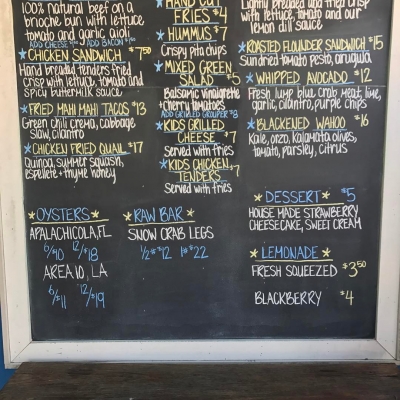 100% natural beef on a
brioche bun with lettuce,
tomato and garlic aioli
ADD CHEESE ADD BACON
★CHICKEN SANDWICH★ $7.50
Hand breaded tenders fried
crisp with lettuce, tomato and
Spicy buttermilk sauce
★FRIED MAHI MAHI TACOS $13
Green chili crema, cabbage
slaw, cilantro
★CHICKEN FRIED QUAIL $17
Quinoa, summer squash,
espellete + thyme honey
★OYSTERS★
APALACHICOLA, FL
6/$10 12/$18
AREA 10, LA
6/$11 12/$19
★HAND CUT
FRIES $4
★HUMMUS $7
Crispy pita chips
★MIXED GREEN
SALAD $5
Balsamic vinaigrette
+ cherry tomatoes
ADD GRILLED GROUPER $8
★KIDS GRILLED
CHEESE $7
Served with fries
★KIDS CHICKEN
TENDERS $7
Served with fries
★RAW BAR★
SNOW CRAB LEGS
1/2# $12 1# $22
Lightly breaded and fried crisp
with lettuce, tomato and our
lemon dill sauce
★ROASTED FLOUNDER SANDWICH $15
Sundried tomato pesto, arugula
★WHIPPED AVOCADO $12
Fresh lump blue crab meat, lime,
garlic, cilantro, purple chips
★BLACKENED WAHOO $16
Kale, orzo, kalamata olives,
tomato, parsley, citrus
★DESSERT★ $5
HOUSE MADE STRAWBERRY
CHEESECAKE, SWEET CREAM
★LEMONADE★
FRESH SQUEEZED $3.50
BLACKBERRY $4